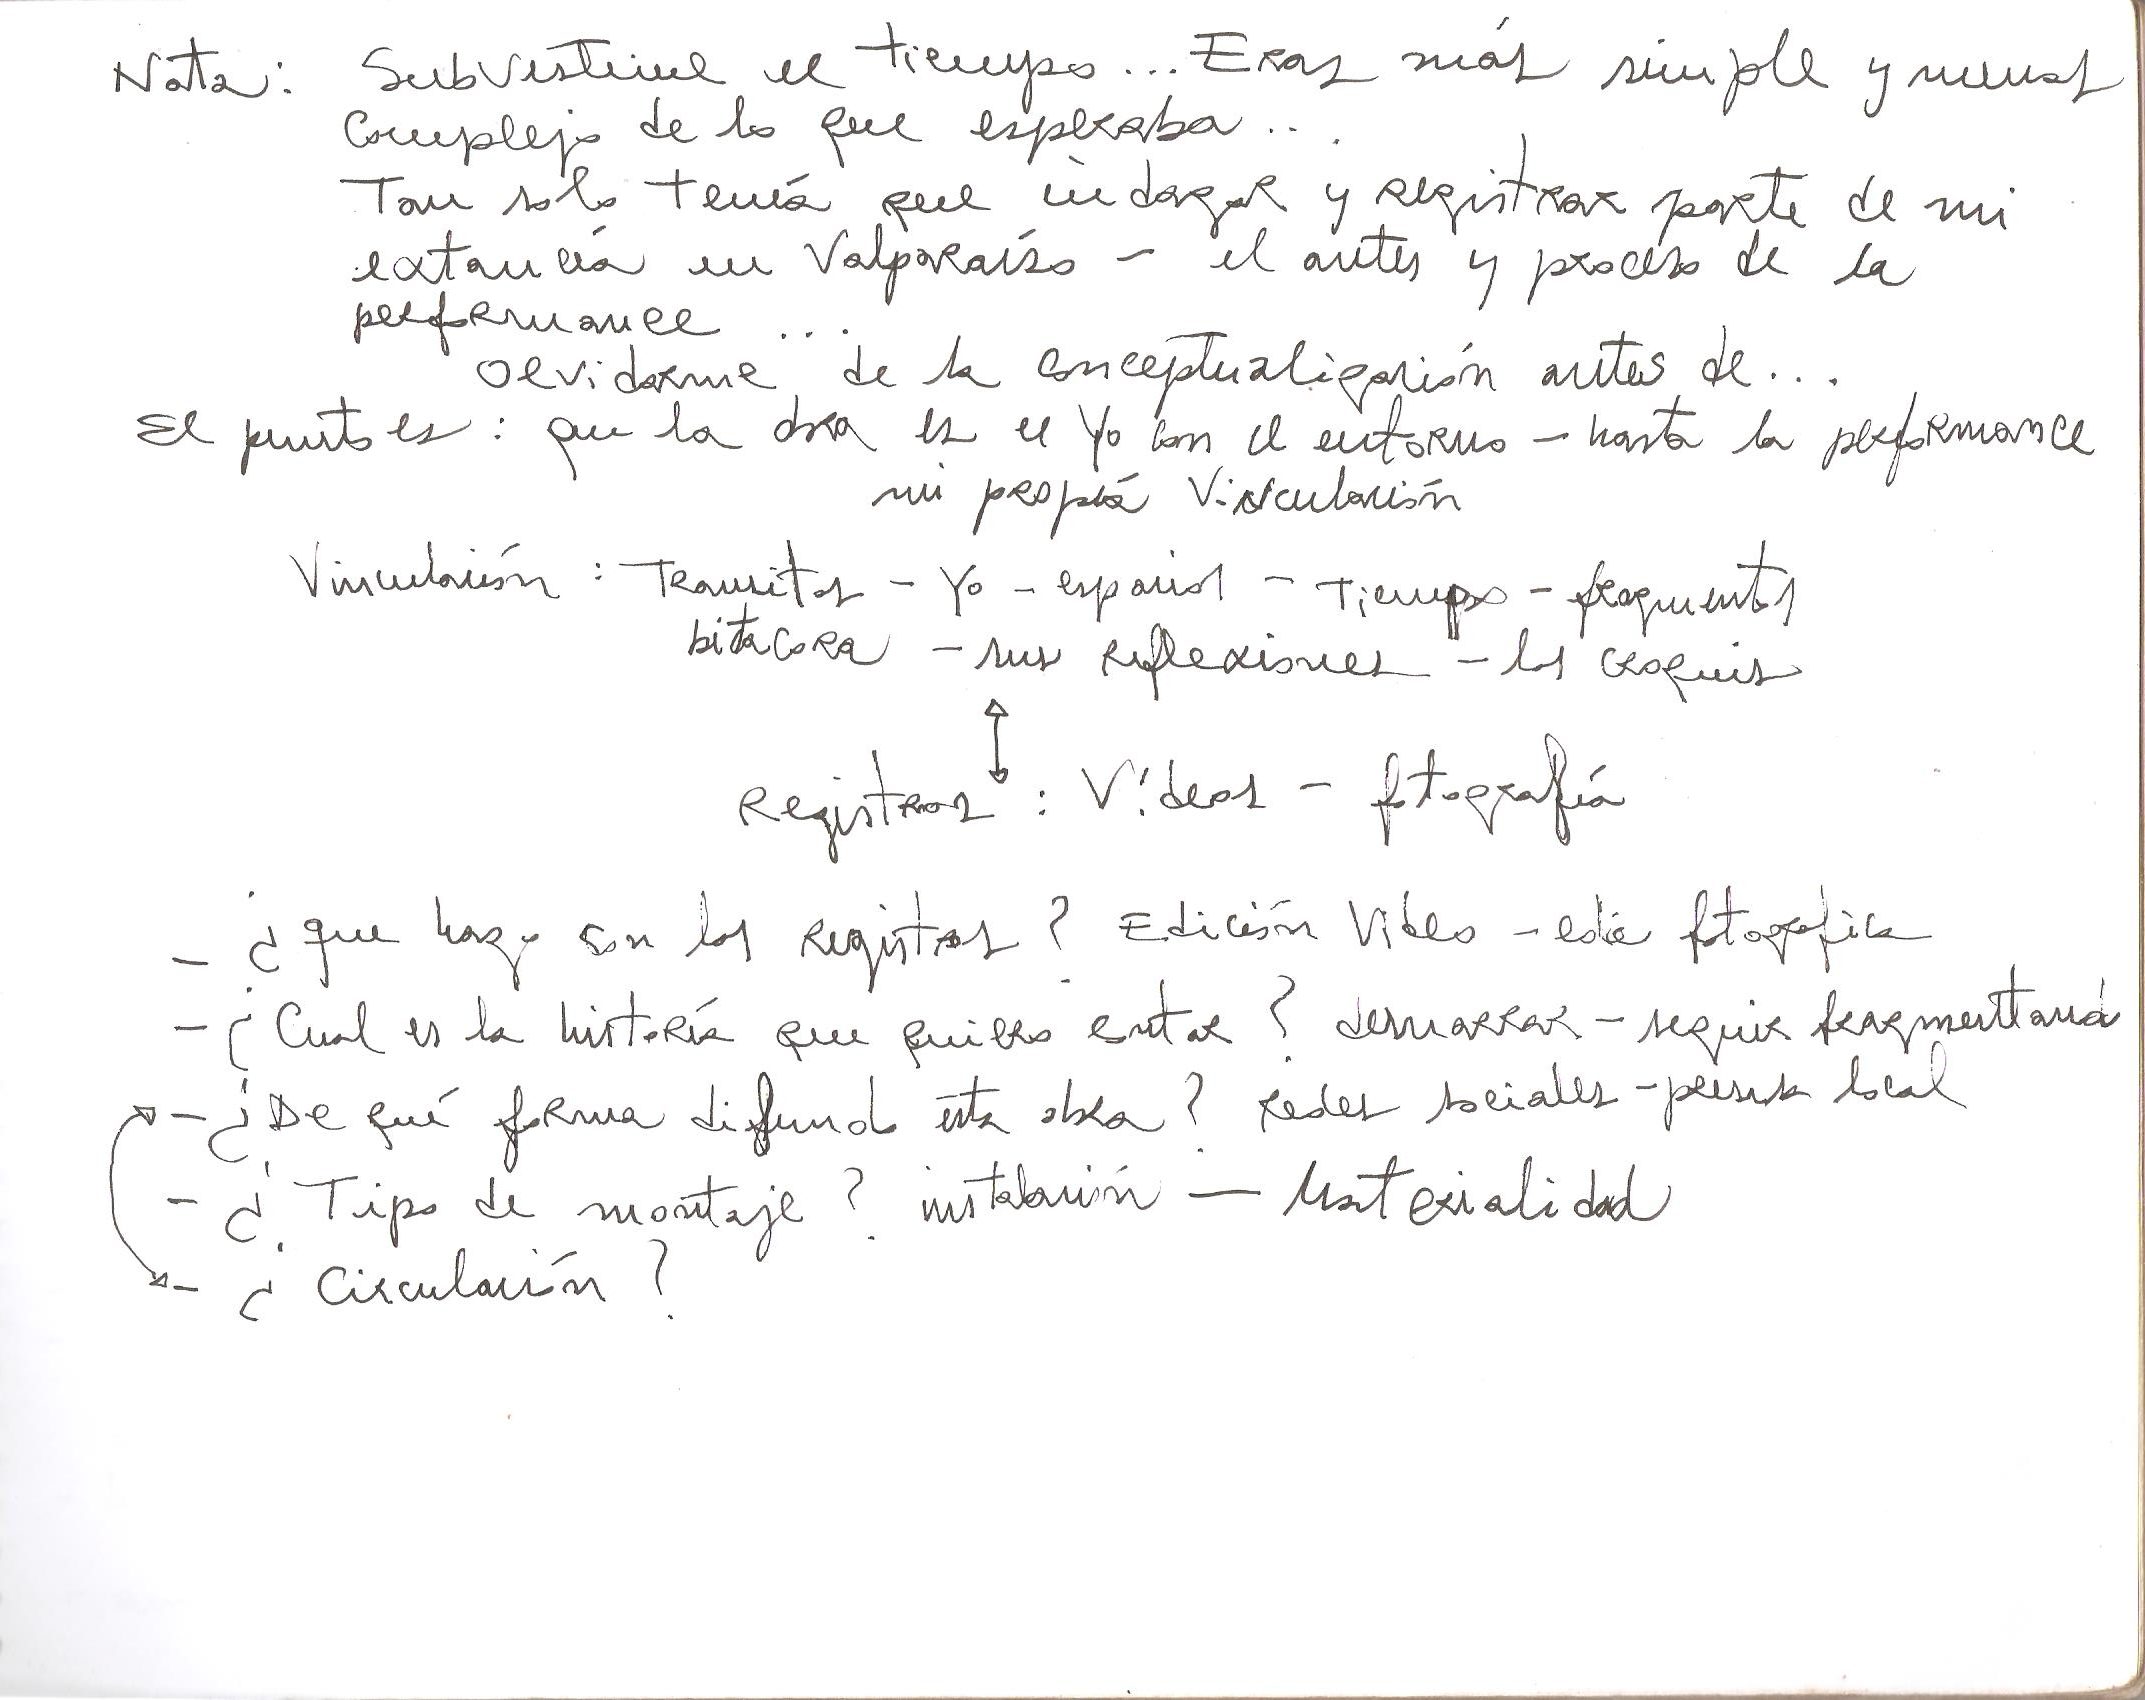 Nota: Subvertime el tiempo... Eras más simple y menos
complejo de lo que esperaba...
Tan solo tenía que indagar y registrar parte de mi
extancia en Valparaíso - el antes y proceso de la
performance ...
olvidarme de la conceptualización antes de...
El punto es: que la obra es el Yo con el entorno - hasta la performance
mi propia Vinculación
Vinculación : Transitos - Yo - espacios - Tiempo - fragmentos
bitacora - sus reflexiones - los croquis
Registros : Vídeos - fotografía
- ¿ que hago con los registros ? Edición Video - fotografica
- ¿ Cual es la historia que quiero contar ? desmarcar - seguir
- ¿ De qué forma difundo esta obra ? redes sociales - prensa local
- ¿ Tipo de montaje ? instalación - Materialidad
- ¿ Circulación ?